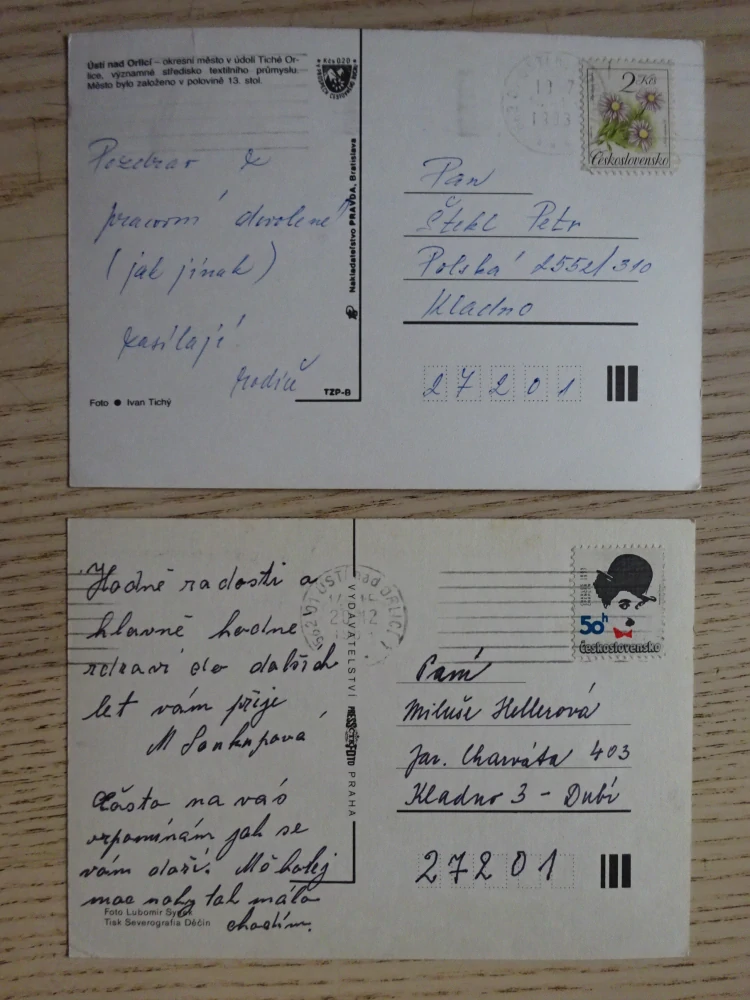 Ústí nad Orlicí – okresní město v údolí Tiché Or-
lice, významné středisko textilního průmyslu.
Město bylo založeno v polovině 13. stol.
Kčs 020
2 Kčs
Československo
Pozdrav z
pracovní dovolené
(jak jinak)
zasílají
rodiče
Pan
Štekl Petr
Polská 2552/310
Kladno
27201
Nakladatelstvo PRAVDA, Bratislava
TZP-B
Foto ● Ivan Tichý
Hodně radosti a
hlavně hodne
zdraví do dalších
let vám přije
M Soukupová
Často na vás
vzpomínám jak se
vám daří. Mě bolej
moc nohy tak málo
chodím.
562 01 ÚSTÍ nad ORLICÍ 1
50h
Československo
Paní
Miluše Hellerová
Jar. Charváta 403
Kladno 3 – Dubí
27201
VYDAVATELSTVÍ PRAHA
Foto Lubomír
Tisk Severografia Děčín